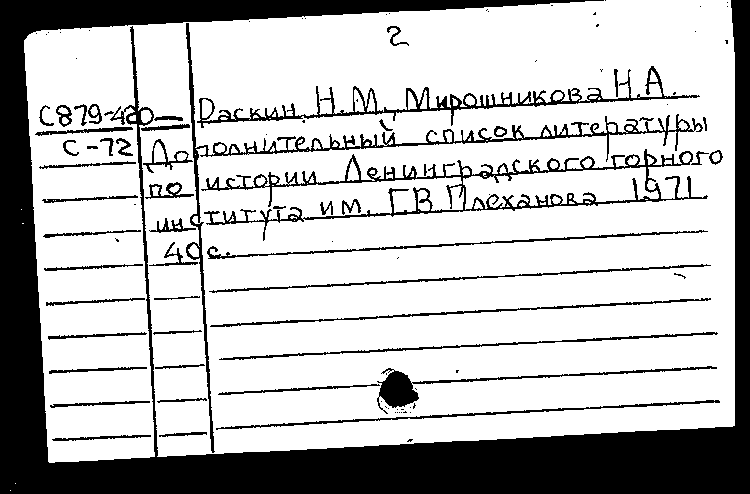 2
С879-480— Раскин, Н.М., Мирошникова Н.А.
С-72 Дополнительный список литературы
по истории Ленинградского горного
института им. Г.В Плеханова 1971
40с.